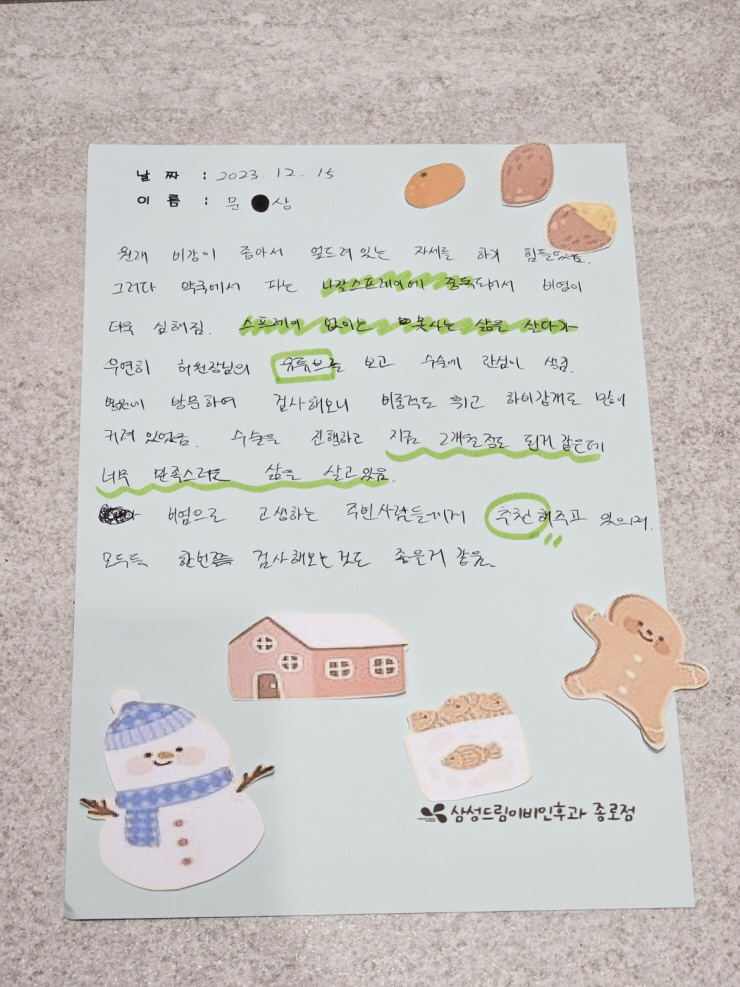 날 짜 : 2023. 12. 15
이 름 : 문 상
원래 비강이 좁아서 엎드려 있는 자세를 하기 힘들었음.
그러다 약국에서 파는 나잘스프레이에 중독되어서 비염이
더욱 심해짐. 스프레이 없이는 못사는 삶을 살다가
우연히 허원장님의 유튜브를 보고 수술에 관심이 생김.
병원에 방문하여 검사해보니 비중격도 휘고 하비갑개도 많이
커져 있었음. 수술을 진행하고 지금 2개월정도 된거 같은데
너무 만족스러운 삶을 살고있음.
비염으로 고생하는 주변사람들에게 추천해주고 있으며,
모두들 한번쯤 검사해보는것도 좋은거 같음.
삼성드림이비인후과 종로점